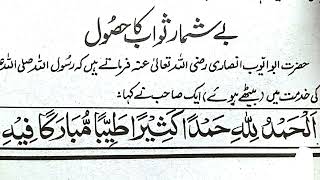 بے شمار ثواب کا حصول
حضرت ابو ایوب انصاری رضی اللہ تعالیٰ عنہ فرماتے ہیں کہ رسول اللہ صلی اللہ
کی خدمت میں (بیٹھے ہوئے) ایک صاحب نے کہا:
اَلْحَمْدُ لِلّٰہِ حَمْدًا کَثِیْرًا طَیِّبًا مُّبَارَکًا فِیْہِ